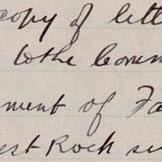 copy of lett
to the Comm
ment of Fa
est Rock su